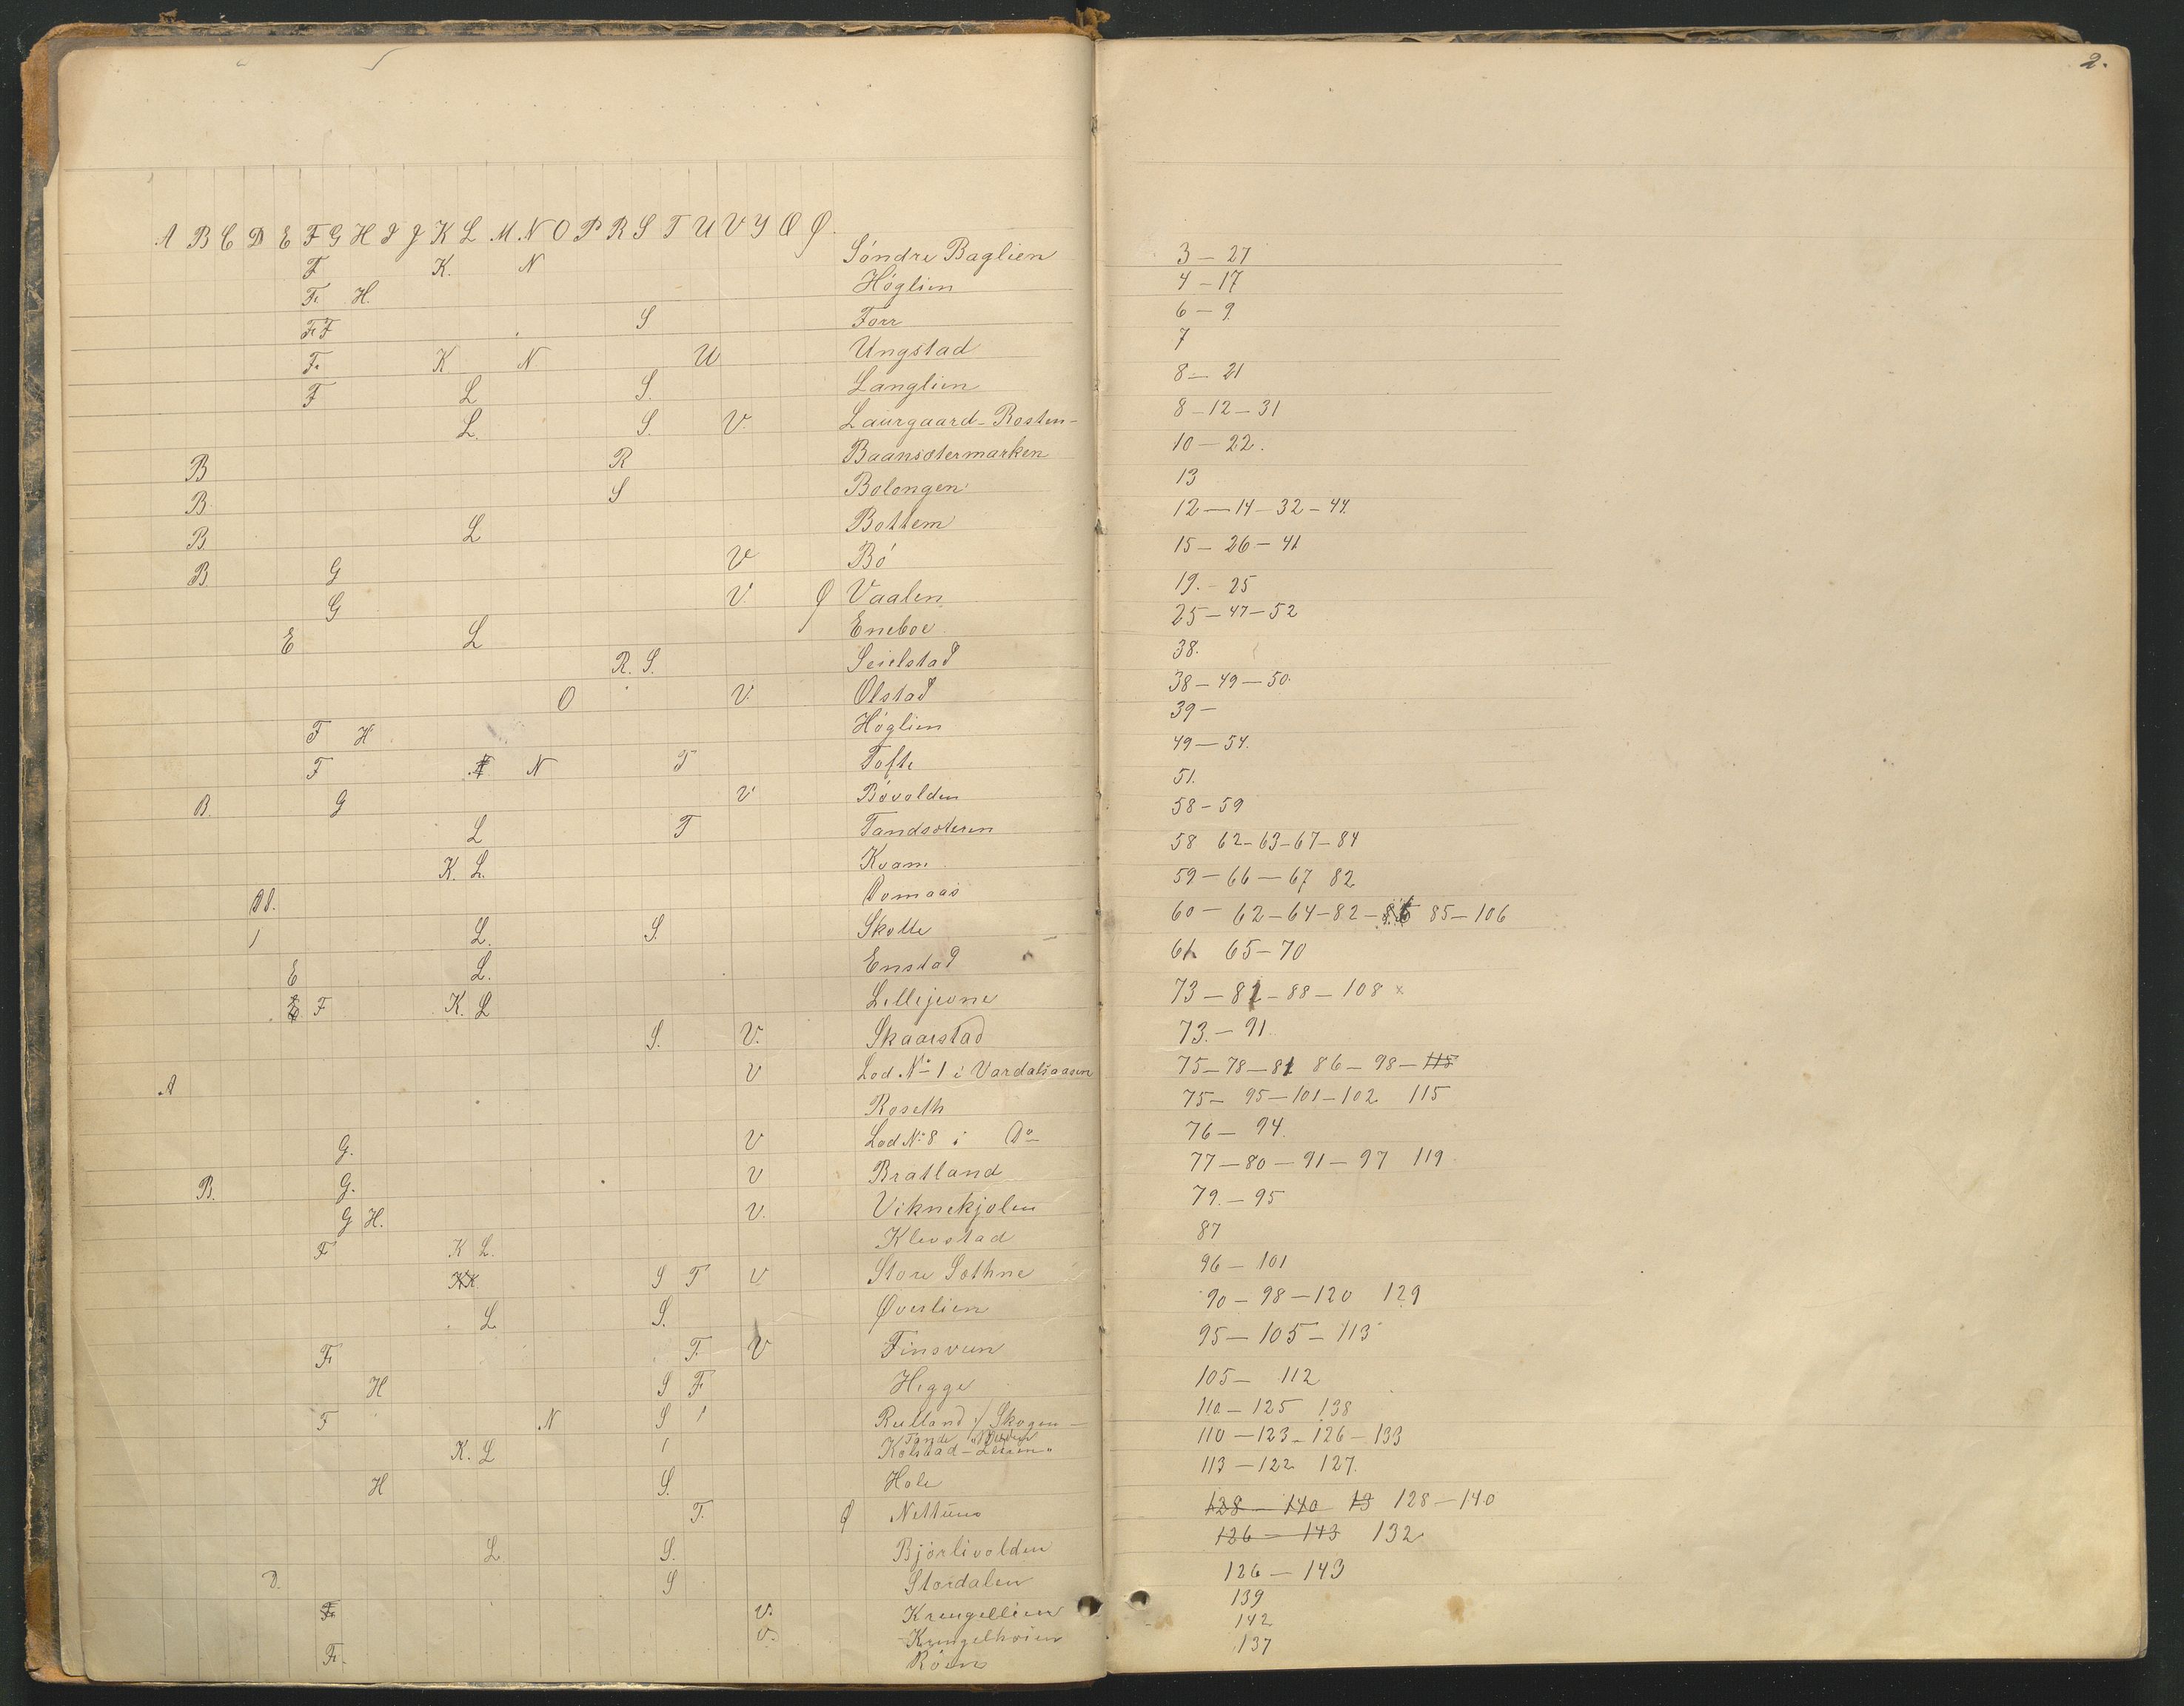 2.
A B C D E F G H I J K L M N O P R S T U V Y Æ Ø.
F K. N Söndre Baglien 3 – 27
F. H. Höglien 4 – 17
F. F S Forr 6 – 9.
F. K N. U Ungstad 7
F L S. Langlien 8 – 21
L. S. V. Laurgaard – Rosten – 8 – 12 – 31
B R Baansætermarken 10 – 22.
B. S Bolongen 13
B. L Bottem 12 – 14 – 32 – 44.
B. G V Bö 15 – 26 – 41
G V. Ø Vaalen 19. – 25
E L Eneboe 25 – 47 – 52
R. S. Seielstad 38.
O V. Olstad 38 – 49 – 50.
F H Höglien 39 –
F N T Tofte 49 – 54.
B. G V Bövolden 51.
L T Tandsæteren 58 – 59
K. L. Kvam 58 62 – 63 – 67 – 84
Domaas 59 – 66 – 67 82
L. S. Skotte 60 – 62 – 64 – 82 – 85 – 106
E L. Enstad 61 65 – 70
E F K. L Lillejevne 73 – 81 – 88 – 108 x
S. V. Skaarstad 73. – 91.
A V Lod No 1 i Vardalsaasen 75 – 78 – 81 86 – 98 – 115
Roseth 75 – 95 – 101 – 102 115
G. V Lod No 8 i Do 76 – 94.
B. G. V Bratland 77 – 80 – 91 – 97 119
G H. V. Viknekjölen 79. – 95
F K L. Klevstad 87
KK S T V Store Sothne 96 – 101
L S. Øverlien 90 – 98 – 120 129
F. T. V Finsveen 95 – 105 – 113
H S F Higge 105 – 112
F N S 1 Rulland / Skogen – 110 – 125 138
K. L 1 Kolstad – 110 – 123 – 126 – 133
H S. Hole 113 – 122 127.
T. Ø Nettum 128 – 140 13 128 – 140
L. S. Bjorlivolden 126 – 143 132
D. S Stordalen 126 – 143
F. V. Krengellien 139
V. Kringelhoien 142
F. Röen 137